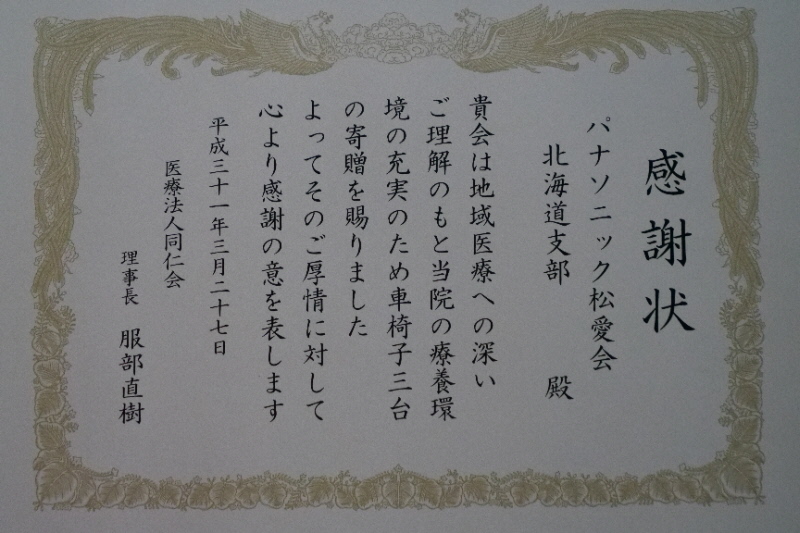 感謝状
パナソニック松愛会
北海道支部　殿
貴会は地域医療への深い
ご理解のもと当院の療養環
境の充実のため車椅子三台
の寄贈を賜りました
よってそのご厚情に対して
心より感謝の意を表します
平成三十一年三月二十七日
医療法人同仁会
理事長　服部直樹